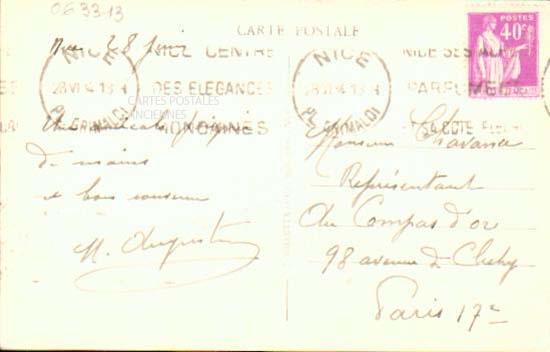 0633-13
CARTE POSTALE
Nice 28
NICE
28 VI 13
PL. GRIMALDI
NICE CENTRE
DES ELEGANCES
MONDAINES
NICE
28 VI
PL. GRIMALDI
NICE SES
PARFUMS
SA COTE
POSTES
40c
CARTES POSTALES
ANCIENNES
de mains
et bon souvenir
M. Augustin
Monsieur Chavance
Représentant
Au Compas d'or
98 avenue de Clichy
Paris 17e